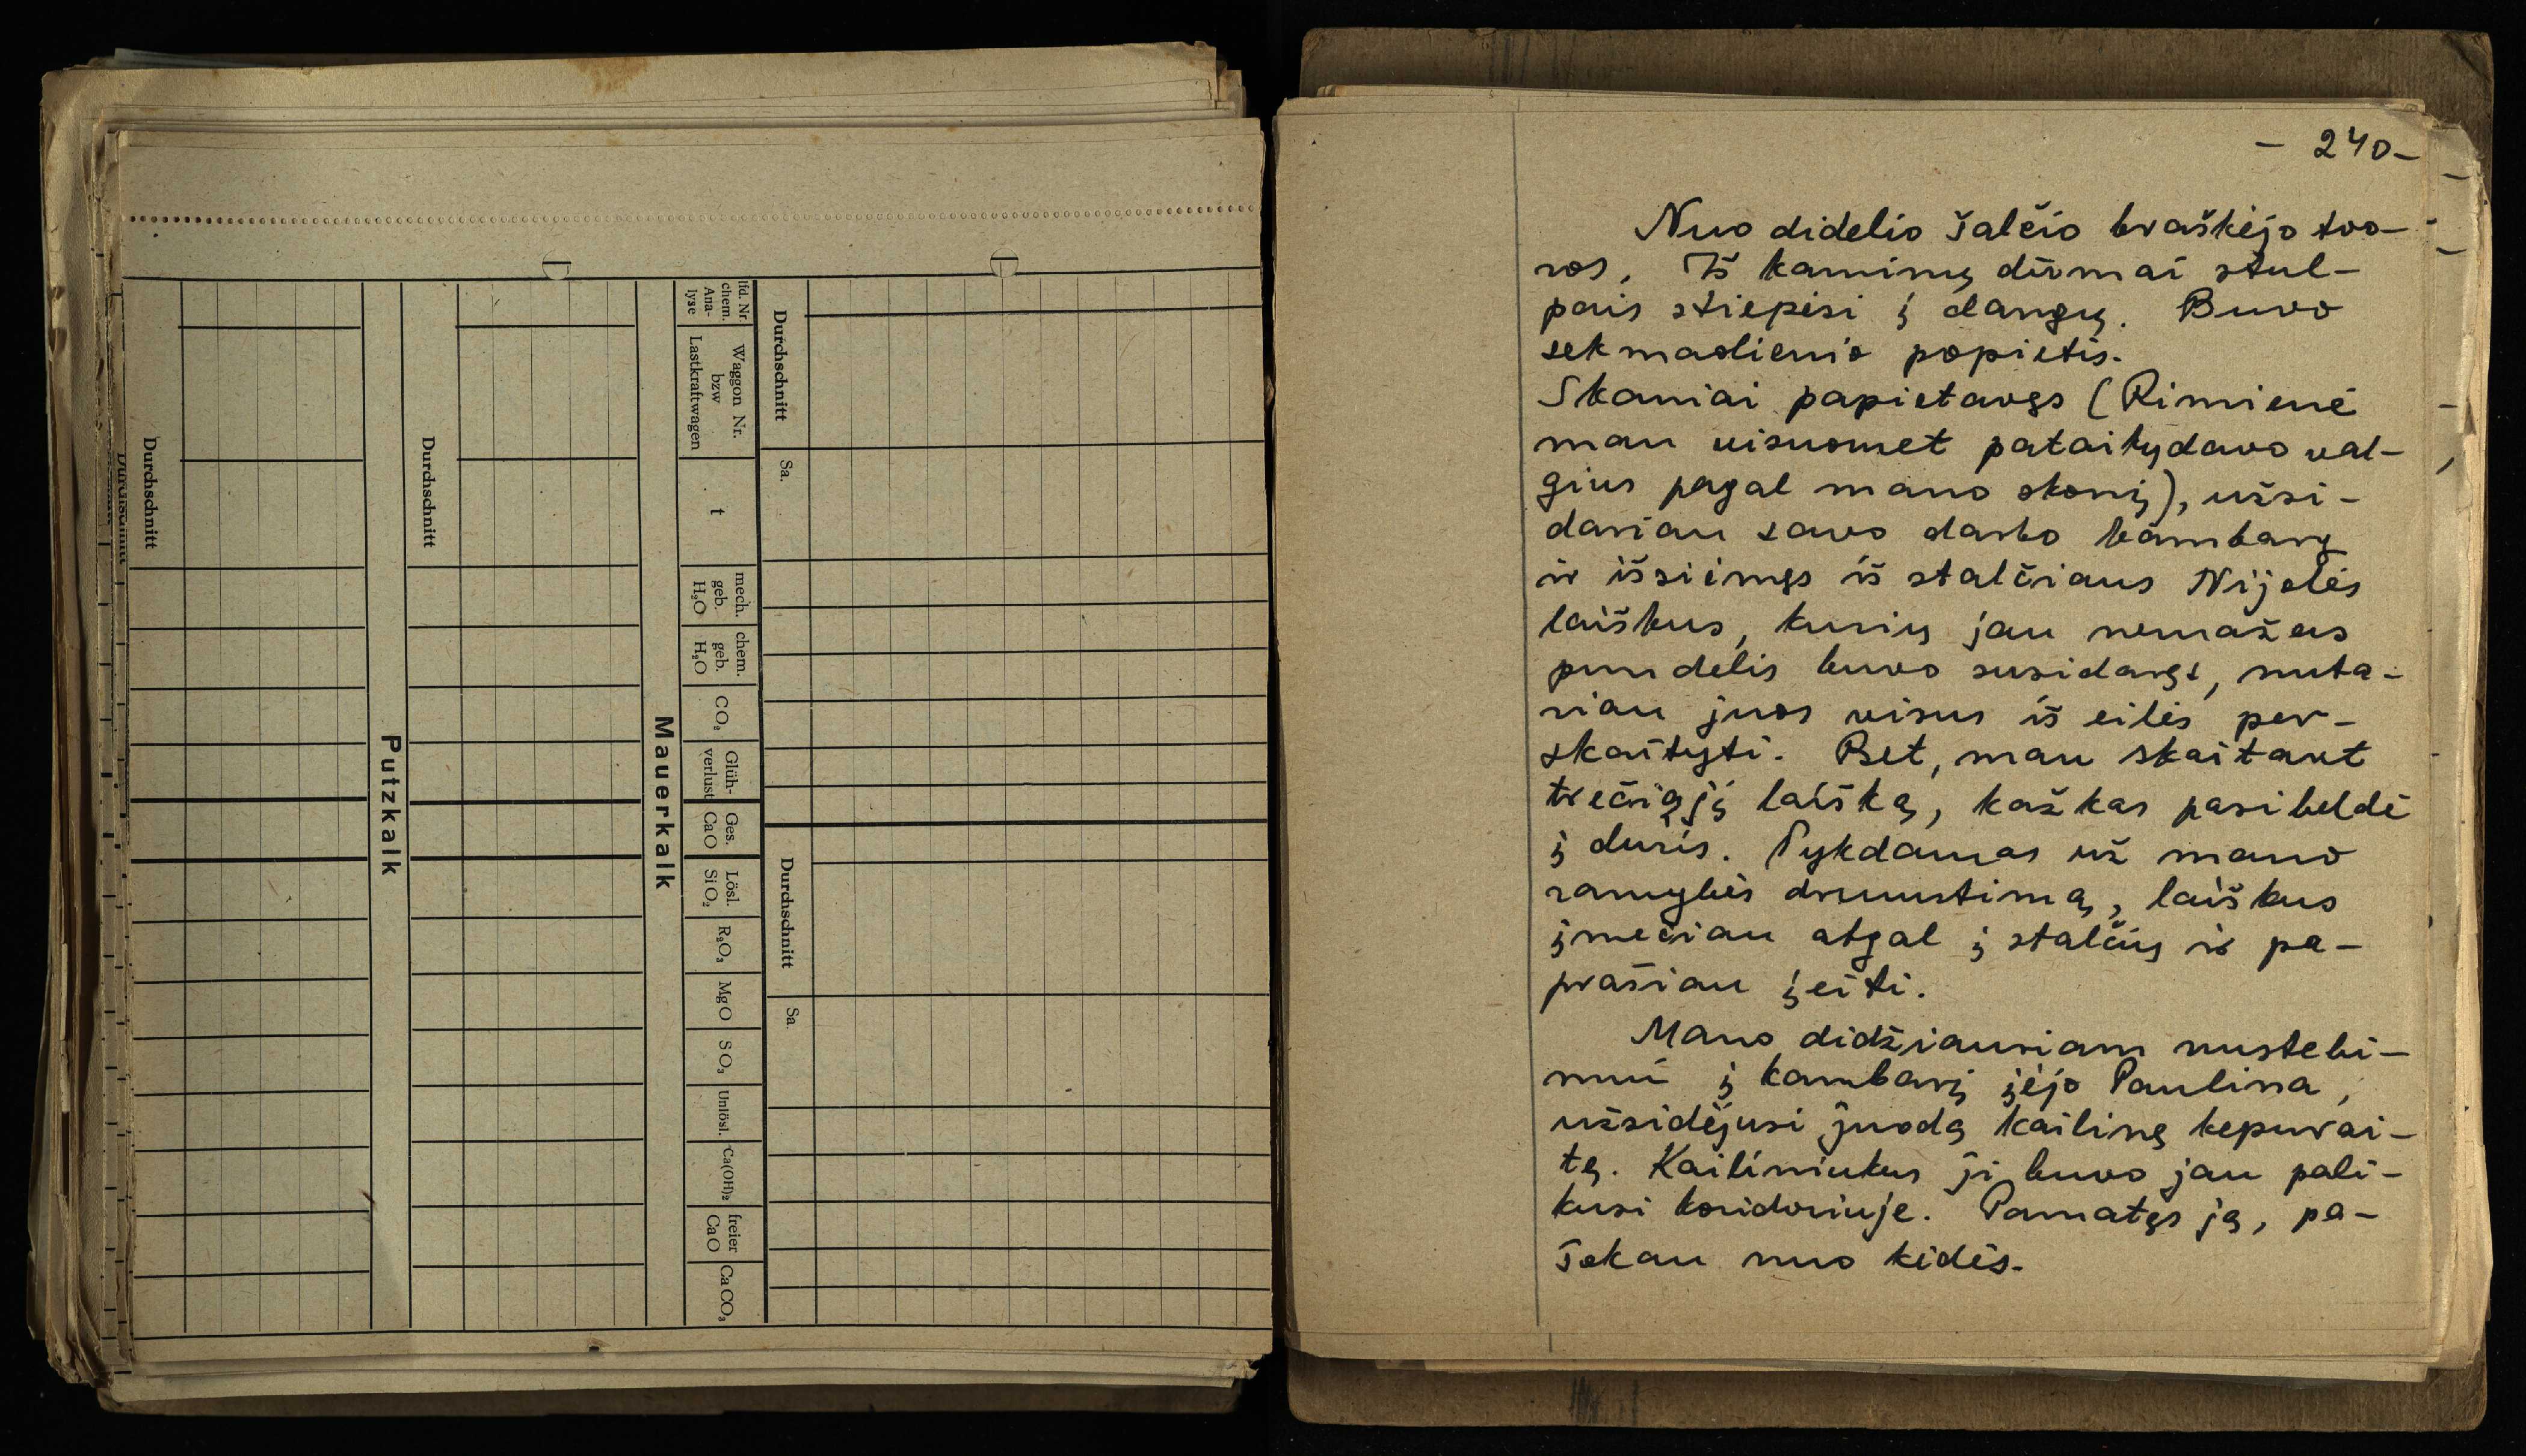 Durchschnitt
Durchschnitt
Putzkalk
Durchschnitt
Mauerkalk
lfd. Nr.
chem.
Ana-
lyse
Waggon Nr.
bzw
Lastkraftwagen
t
mech.
geb.
H₂O
chem.
geb.
H₂O
CO₂
Glüh-
verlust
Ges.
CaO
Lösl.
SiO₂
R₂O₃
MgO
SO₃
Unlösl.
Ca(OH)₂
freier
CaO
CaCO₃
Durchschnitt
Sa.
Durchschnitt
Sa.
- 240-
Nuo didelio šalčio braškėjo tvo-
ros. Iš kaminų dūmai stul-
pais stiepėsi į dangų. Buvo
sekmadienio popietis.
Skaniai papietavęs (Rimienė
man visuomet pataikydavo val-
gius pagal mano skonį), užsi-
dariau savo darbo kambarį
ir išsiėmęs iš stalčiaus Nijolės
laiškus, kurių jau nemažas
pundelis buvo susidaręs, nuta-
riau juos visus iš eilės per-
skaityti. Bet, man skaitant
trečiąjį laišką, kažkas pasibeldė
į duris. Pykdamas už mano
ramybės drumstimą, laiškus
įmečiau atgal į stalčių ir pa-
prašiau įeiti.
Mano didžiausiam nustebi-
mui į kambarį įėjo Paulina,
užsidėjusi juodą kailinę kepurai-
tę. Kailiniukus ji buvo jau pali-
kusi koridoriuje. Pamatęs ją, pa-
šokau nuo kėdės.